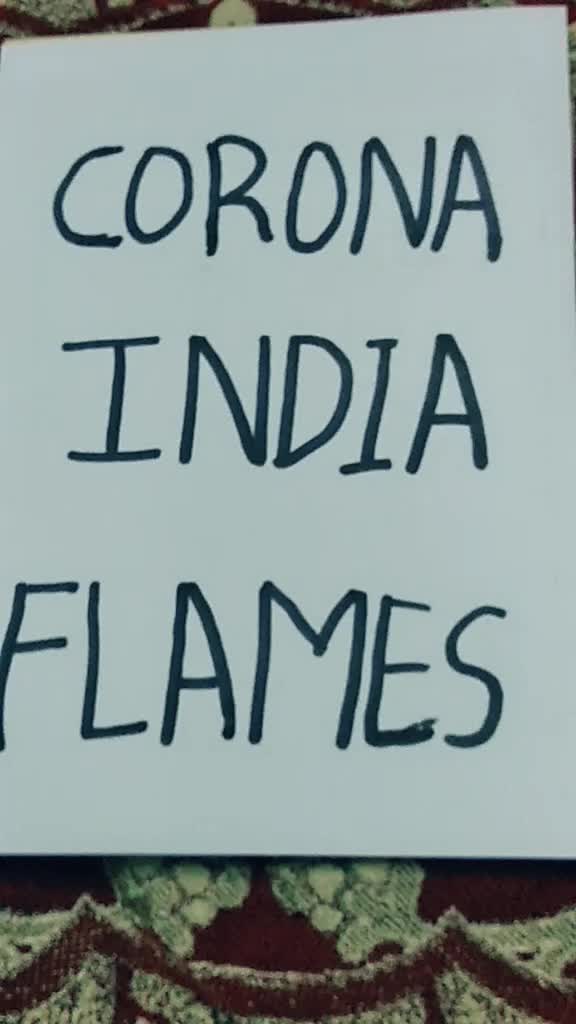 CORONA
INDIA
FLAMES